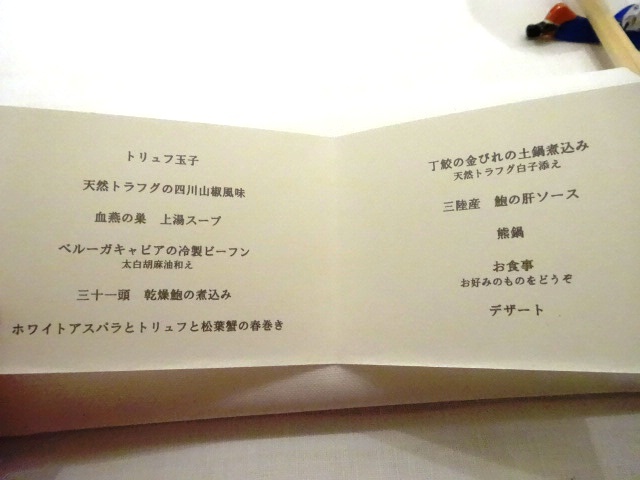 トリュフ玉子
天然トラフグの四川山椒風味
血燕の巣　上湯スープ
ベルーガキャビアの冷製ビーフン
太白胡麻油和え
三十一頭　乾燥鮑の煮込み
ホワイトアスパラとトリュフと松葉蟹の春巻き
丁鮫の金びれの土鍋煮込み
天然トラフグ白子添え
三陸産　鮑の肝ソース
熊鍋
お食事
お好みのものをどうぞ
デザート